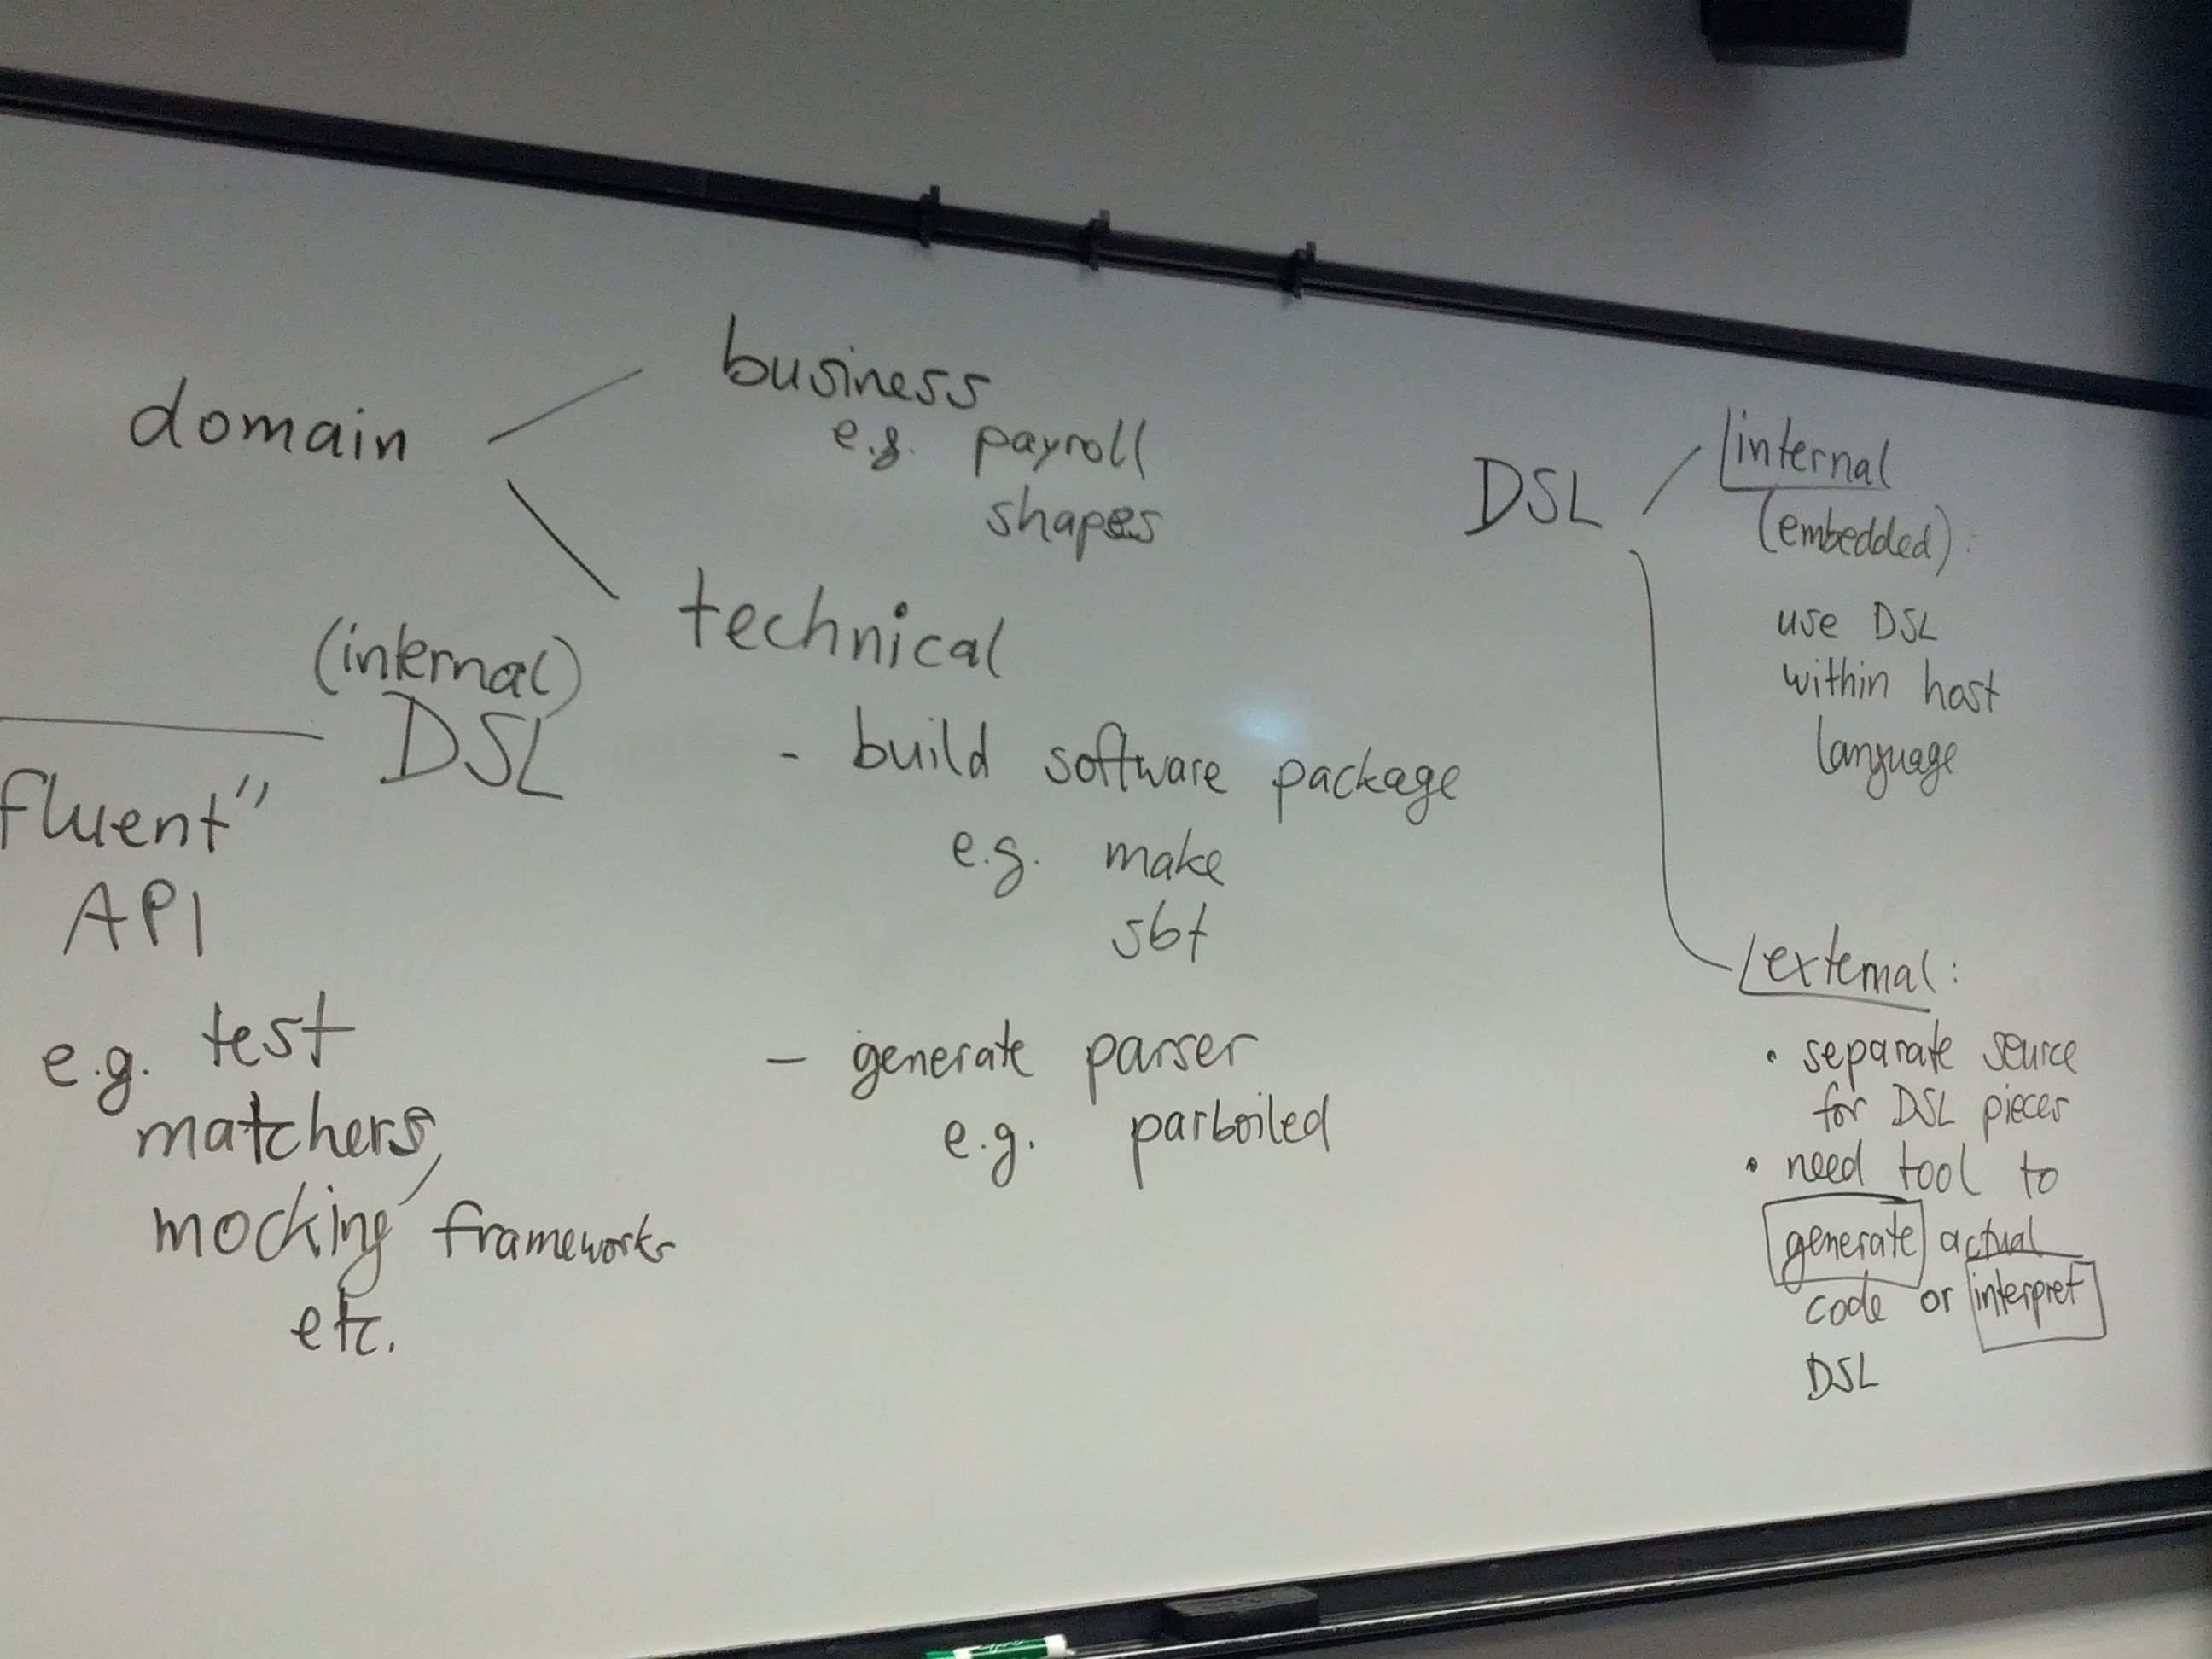 domain
business
e.g. payroll
shapes
technical
- build software package
e.g. make
sbt
- generate parser
e.g. parboiled
(internal)
DSL
fluent"
API
e.g. test
matchers,
mocking frameworks
etc.
DSL
internal
(embedded):
use DSL
within host
language
external:
• separate source
for DSL pieces
• need tool to
generate actual
code or interpret
DSL